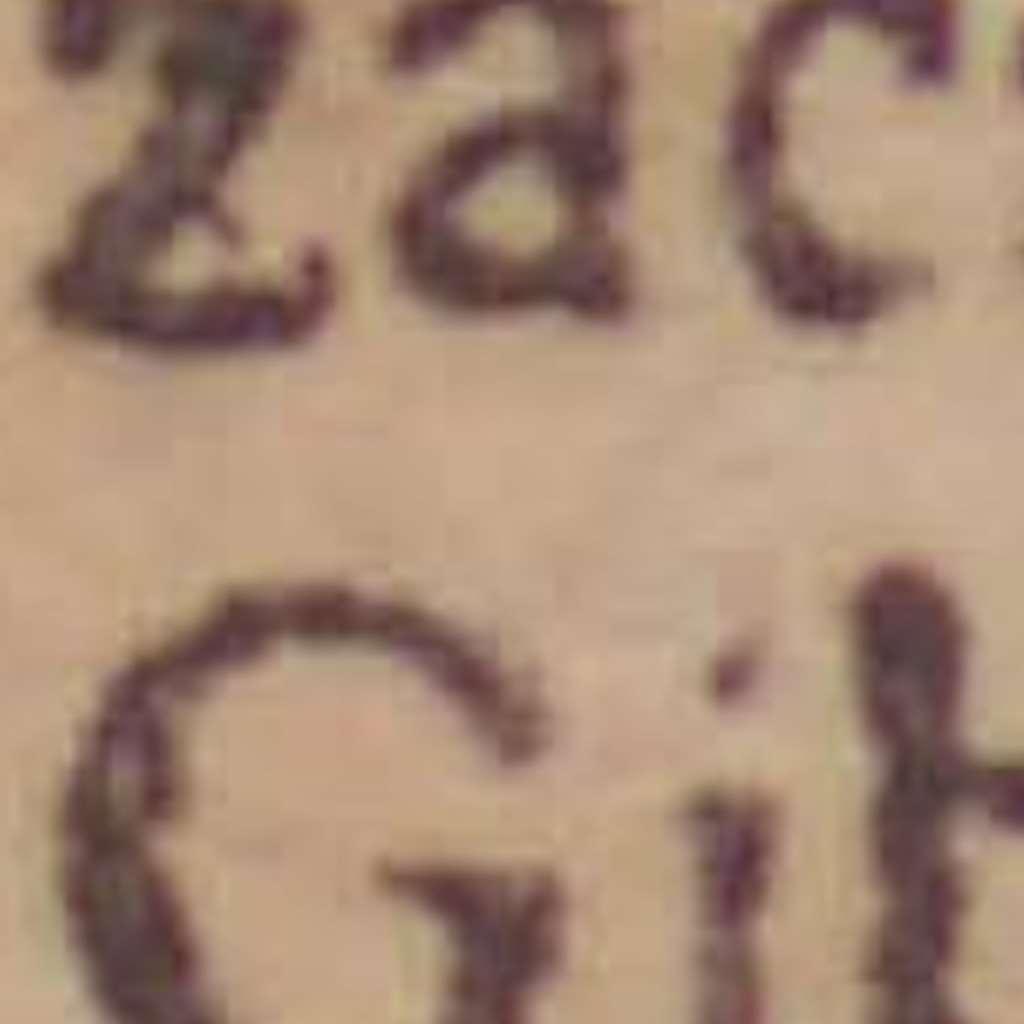 zac
Gih